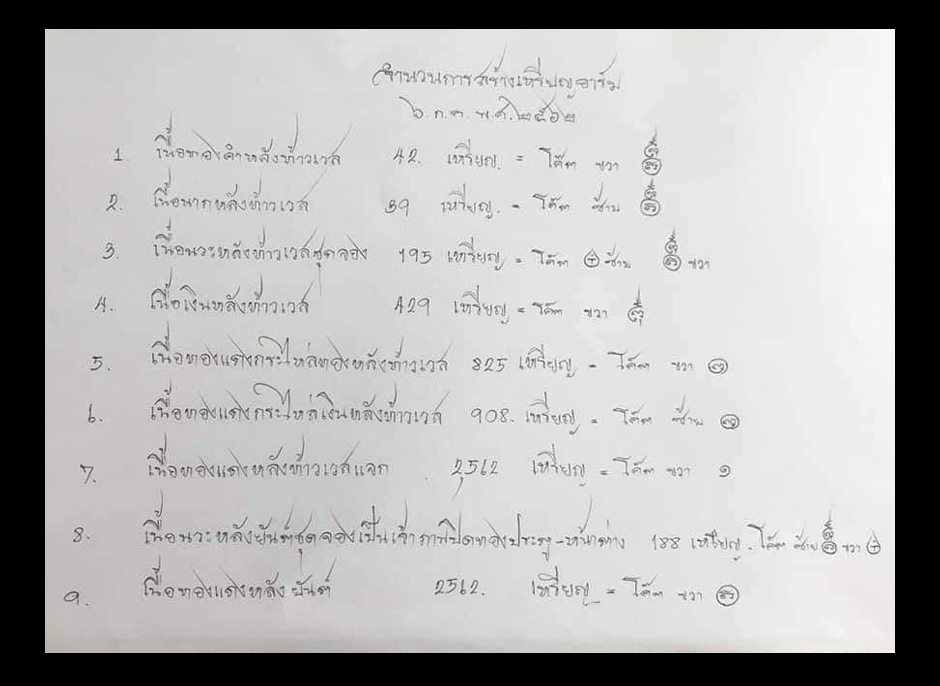 จำนวนการสร้างเหรียญอาร์ม
๖ ก.ค. พ.ศ. ๒๕๖๒
1. เนื้อทองคำหลังท้าวเวส 42. เหรียญ. = โค๊ต ขวา
2. เนื้อนากหลังท้าวเวส 39 เหรียญ. = โค๊ต ซ้าย
3. เนื้อนวะหลังท้าวเวสชุดจอง 195 เหรียญ = โค๊ต ซ้าย ขวา
4. เนื้อเงินหลังท้าวเวส 429 เหรียญ = โค๊ต ขวา
5. เนื้อทองแดงกระไหล่ทองหลังท้าวเวส 825 เหรียญ = โค๊ต ขวา
6. เนื้อทองแดงกระไหล่เงินหลังท้าวเวส 908. เหรียญ = โค๊ต ซ้าย
7. เนื้อทองแดงหลังท้าวเวสแจก 2,562 เหรียญ = โค๊ต ขวา ๑
8. เนื้อนวะหลังยันต์ชุดจองเป็นเจ้าภาพปิดทองประตู-หน้าต่าง 188 เหรียญ. โค๊ต ซ้าย ขวา
9. เนื้อทองแดงหลังยันต์ 2562. เหรียญ = โค๊ต ขวา